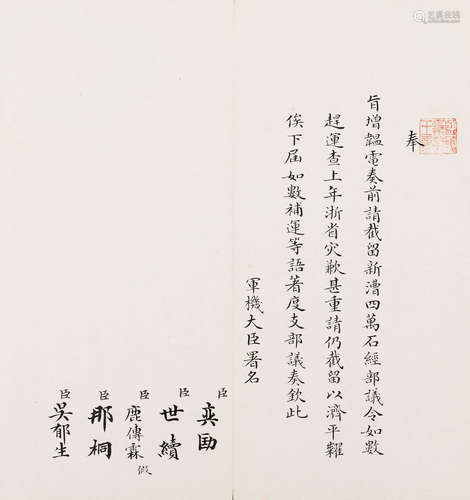 奉
旨增韞電奏前請截留新漕四萬石經部議令如數
趕運查上年浙省灾歉甚重請仍截留以濟平糶
俟下届如數補運等語著度支部議奏欽此
軍機大臣署名
臣 奕劻
臣 世續
臣 鹿傳霖 假
臣 那桐
臣 吳郁生